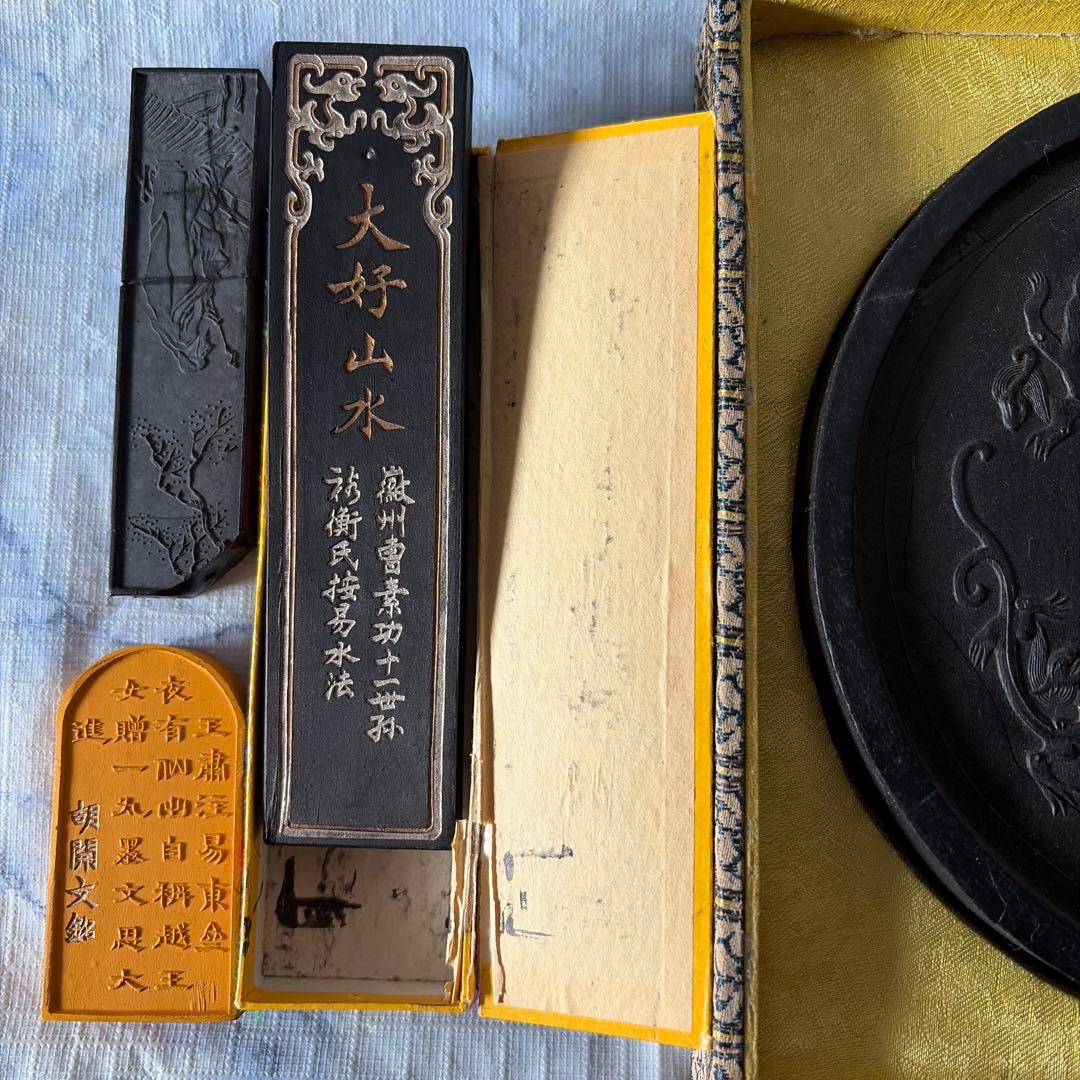 大好山水
徽州曹素功十一世孫
裕衡氏按易水法
王肅注易東
夜有仙出自稱越王
女贈一丸墨文思大
進
胡開文銘